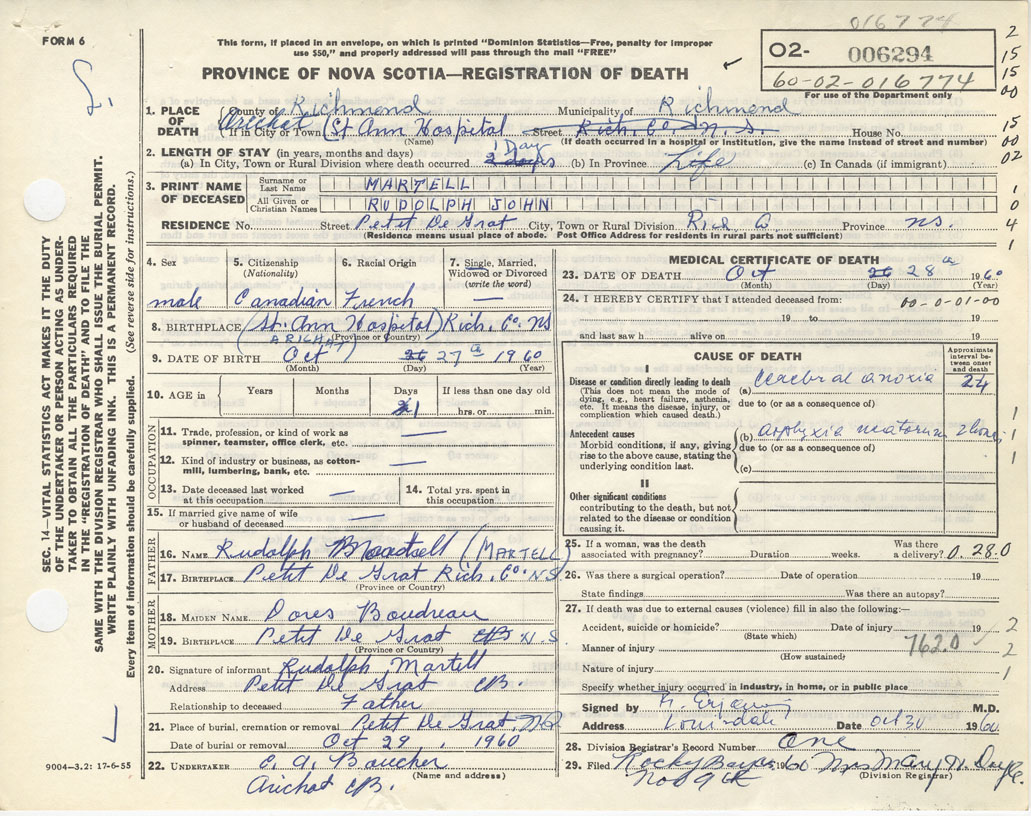 016774
FORM 6
This form, if placed in an envelope, on which is printed "Dominion Statistics—Free, penalty for improper
use $50," and properly addressed will pass through the mail "FREE"
PROVINCE OF NOVA SCOTIA—REGISTRATION OF DEATH
O2- 006294
60-02-016774
For use of the Department only
2
15
15
00
15
00
02
1
0
4
1
SEC. 14—VITAL STATISTICS ACT MAKES IT THE DUTY
OF THE UNDERTAKER OR PERSON ACTING AS UNDER-
TAKER TO OBTAIN ALL THE PARTICULARS REQUIRED
IN THE "REGISTRATION OF DEATH" AND TO FILE THE
SAME WITH THE DIVISION REGISTRAR WHO SHALL ISSUE THE BURIAL PERMIT.
WRITE PLAINLY WITH UNFADING INK. THIS IS A PERMANENT RECORD.
Every item of information should be carefully supplied. (See reverse side for instructions.)
9004—3.2: 17-6-55
1. PLACE OF DEATH County of Richmond Municipality of Richmond
If in City or Town (St Ann Hospital Street Rich. Co. N. S. House No.
(Name) (If death occurred in a hospital or institution, give the name instead of street and number)
2. LENGTH OF STAY (in years, months and days) 1 Day
(a) In City, Town or Rural Division where death occurred 2 days (b) In Province Life (c) In Canada (if immigrant)
3. PRINT NAME OF DECEASED
Surname or Last Name MARTELL
All Given or Christian Names RUDOLPH JOHN
RESIDENCE No. Street Petit De Grat City, Town or Rural Division Rich Co. Province NS.
(Residence means usual place of abode. Post Office Address for residents in rural parts not sufficient)
4. Sex 5. Citizenship (Nationality) 6. Racial Origin 7. Single, Married, Widowed or Divorced (write the word)
male Canadian French —
8. BIRTHPLACE (St. Ann Hospital) Rich. Co. NS
ARICHAT (Province or Country)
9. DATE OF BIRTH Oct 26 27 a 1960
(Month) (Day) (Year)
10. AGE in Years Months Days If less than one day old
2 1 hrs. or min.
OCCUPATION
11. Trade, profession, or kind of work as spinner, teamster, office clerk, etc. —
12. Kind of industry or business, as cotton-mill, lumbering, bank, etc. —
13. Date deceased last worked at this occupation — 14. Total yrs. spent in this occupation
15. If married give name of wife or husband of deceased —
FATHER
16. NAME Rudolph (MARTELL)
17. BIRTHPLACE Petit De Grat Rich. Co. NS
(Province or Country)
MOTHER
18. MAIDEN NAME Dores Boudreau
19. BIRTHPLACE Petit De Grat CB N.S
(Province or Country)
20. Signature of informant Rudolph Martell
Address Petit De Grat CB.
Relationship to deceased Father
21. Place of burial, cremation or removal Petit De Grat, NS
Date of burial or removal Oct 29, 1960
22. UNDERTAKER C. A. Boucher
(Name and address)
Arichat CB.
MEDICAL CERTIFICATE OF DEATH
23. DATE OF DEATH Oct 26 28 a 1960
(Month) (Day) (Year)
24. I HEREBY CERTIFY that I attended deceased from: 00-0-01-00
19 to 19
and last saw h alive on 19
CAUSE OF DEATH
Approximate interval between onset and death
I
Disease or condition directly leading to death
(This does not mean the mode of dying, e.g., heart failure, asthenia, etc. It means the disease, injury, or complication which caused death.)
(a) Cerebral anoxia 24
due to (or as a consequence of)
Antecedent causes
Morbid conditions, if any, giving rise to the above cause, stating the underlying condition last.
(b) asphyxia neatorum 2 hours
due to (or as a consequence of)
(c)
II
Other significant conditions
contributing to the death, but not related to the disease or condition causing it.
1
1
1
25. If a woman, was the death associated with pregnancy? Duration weeks. Was there a delivery? 0.28.0
26. Was there a surgical operation? Date of operation 19
State findings Was there an autopsy?
27. If death was due to external causes (violence) fill in also the following:—
Accident, suicide or homicide? Date of injury 19
(State which)
Manner of injury 762.0
(How sustained)
Nature of injury
2
2
1
Specify whether injury occurred in industry, in home, or in public place
Signed by M.D.
Address Louisdale Date Oct 30 1960
28. Division Registrar's Record Number One
29. Filed 1960 Mrs Mary H. Doyle
Nov 9th (Division Registrar)